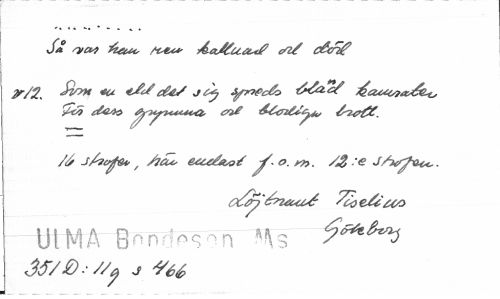 . . . . . . . . .
Så var han ren kallnad och död
v 12. Som en eld det sig spreds bland kamrater
För dess grymma och blodiga brott.
16 strofer, här endast f.o.m. 12:e strofen.
Löjtnant Tiselius
Göteborg
ULMA Bondeson Ms
351 D: 11g s 466